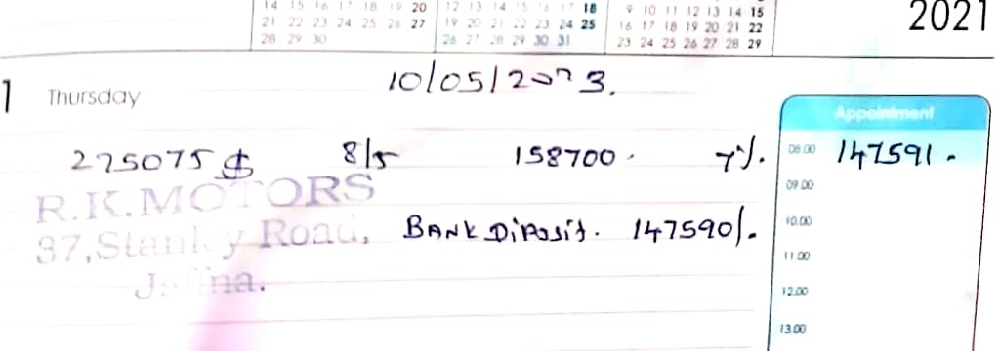 14 15 16 17 18 19 20
21 22 23 24 25 26 27
28 29 30
12 13 14 15 16 17 18
19 20 21 22 23 24 25
26 27 28 29 30 31
9 10 11 12 13 14 15
16 17 18 19 20 21 22
23 24 25 26 27 28 29
2021
1 Thursday
10/05/2023.
Appointment
275075 $ 8/5 158700 - 7%. 08.00 147591 -
09.00
R.K.MOTORS
37,Stanley Road, BANK Diposit. 147590/- 10.00
11.00
Jalna.
12.00
13.00